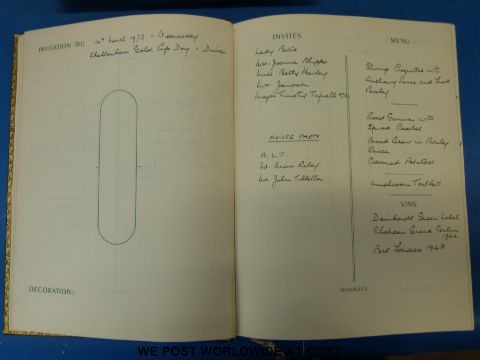 INVITATION DU 14th March 1973 - Wednesday
Cheltenham Gold Cup Day - Dinner
DÉCORATION:
INVITÉS
Lady Petre
Mrs. Joanna Phipps
Miss Betty
Mrs. Jameson
Major Timothy
HOUSE PARTY
R.L.T.
Mr. Brian
Mr. John
MENU
Shrimp Croquettes with
Anchovy Sauce and Fried
Parsley
Roast Gammon with
Spiced Peaches
Broad Beans in Parsley
Sauce
Creamed Potatoes
Mushroom Tartlets
VINS
Deinhardt Green Label
Chateau Grand
Port Fonseca 1948
REMARQUES
WE POST WORLDWIDE AT COST